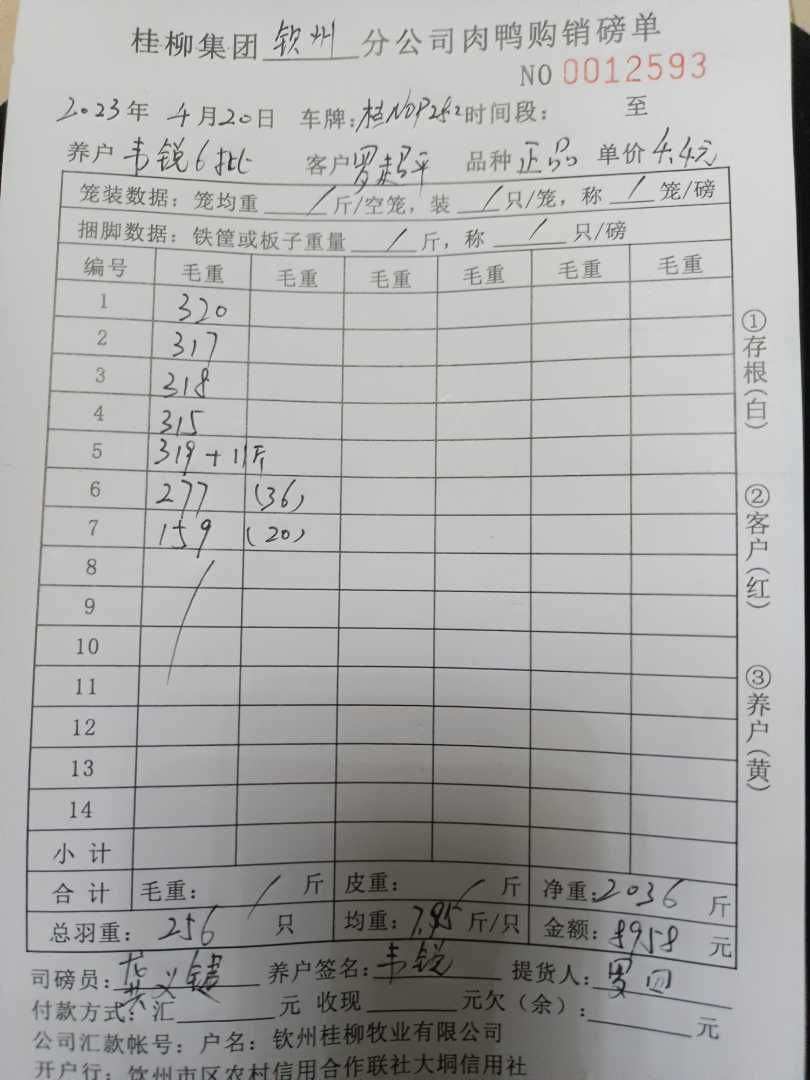 桂柳集团 钦州 分公司肉鸭购销磅单
NO 0012593
2023年 4月20日 车牌:桂N0P252 时间段: 至
养户 韦锐6批 客户 罗超平 品种 正品 单价 4.4元
笼装数据：笼均重 / 斤/空笼，装 / 只/笼，称 / 笼/磅
捆脚数据：铁筐或板子重量 / 斤，称 / 只/磅
编号 毛重 毛重 毛重 毛重 毛重 毛重
1 320
2 317
3 318
4 315
5 319+11斤
6 277 (36)
7 159 (20)
8
9
10
11
12
13
14
小计
合计 毛重: / 斤 皮重: / 斤 净重:2036 斤
总羽重: 256 只 均重:7.95 斤/只 金额:8958 元
司磅员: 义 养户签名:韦锐 提货人:罗四
付款方式: 汇 元 收现 元欠(余): 元
公司汇款帐号: 户名: 钦州桂柳牧业有限公司
开户行: 钦州市区农村信用合作联社大垌信用社
①存根(白)
②客户(红)
③养户(黄)